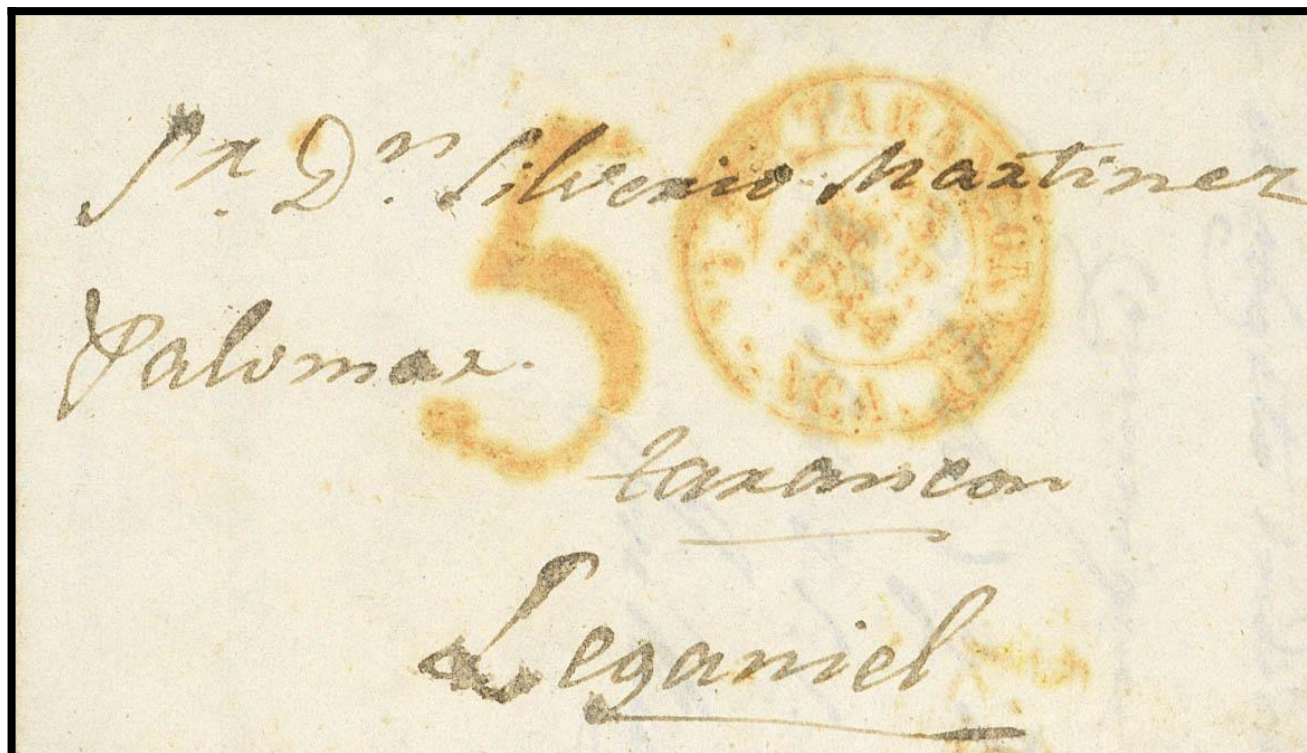 Sr. Dn. Silverio Martinez
5
Palomar.
tarancon
Leganiel